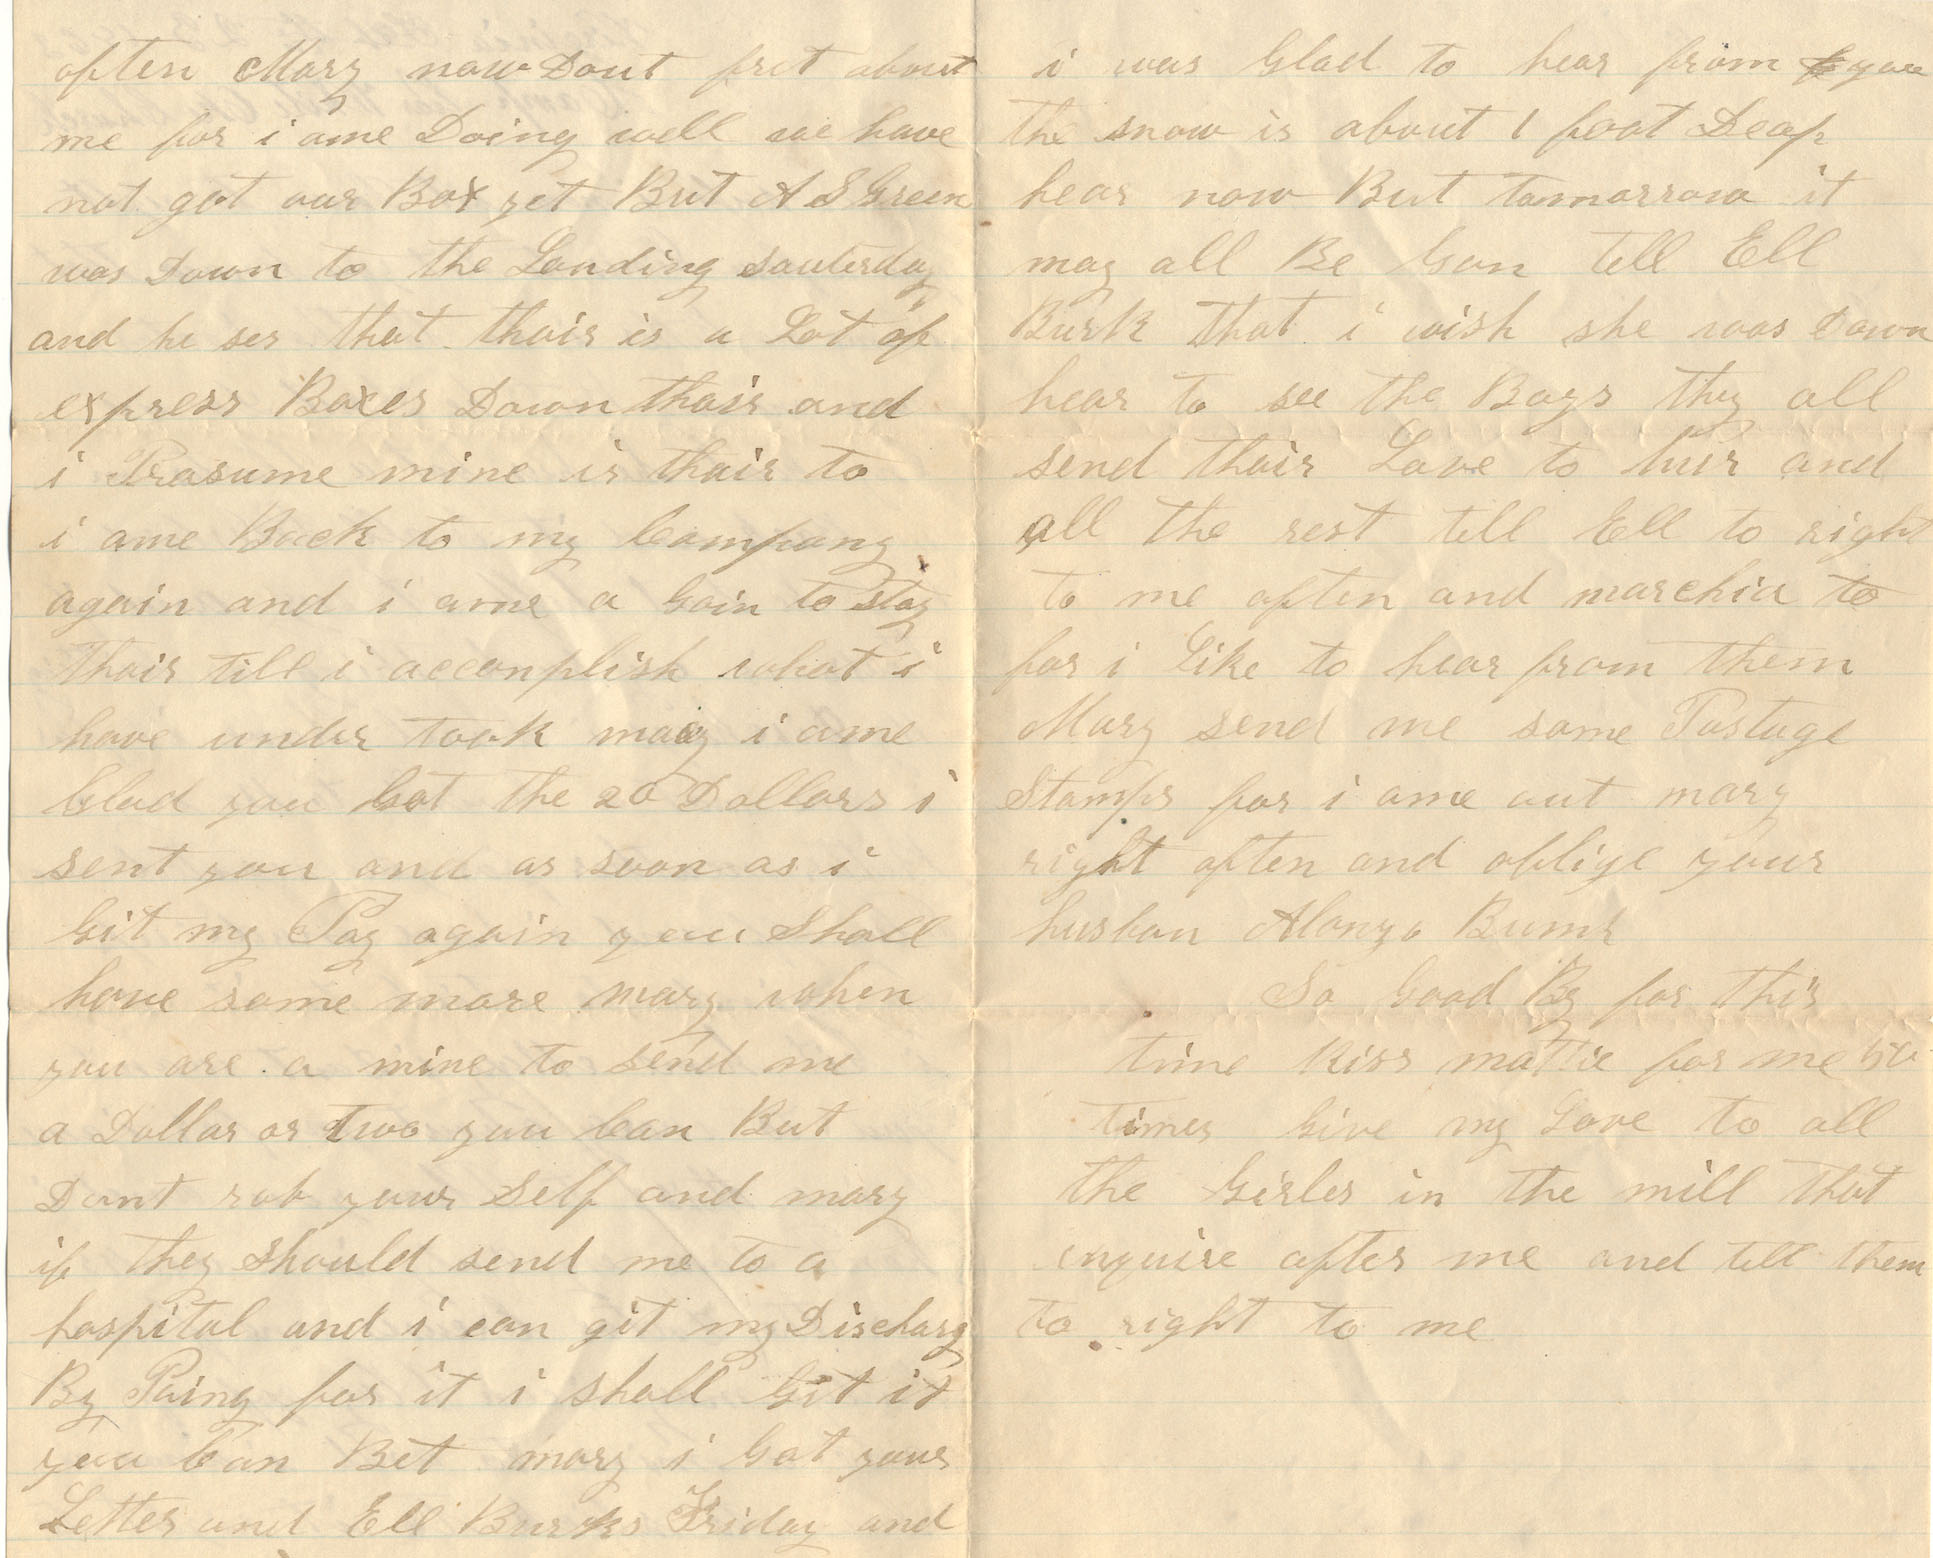 often Mary now Dont fret about
me for i ame Doing well we have
not got our Box yet But A S Green
was Down to the Landing Sauterday
and he ses that thair is a Lot of
express Boxes Down thair and
i Prasume mine is thair to
i ame Back to my Company
again and i ame a Goin to stay
thair till i acconplish what i
have under took mary i ame
Glad you Got the 20 Dollars i
sent you and as soon as i
Git my Pay again you Shall
have some more mary when
you are a mine to send me
a Dollar or two you Can But
Dont rob your Self and mary
if they should send me to a
hospital and i can git my Discharg
By Paing for it i shall Git it
you Can Bet mary i Got your
Letter and Ell Burks Friday and
i was Glad to hear from you
the snow is about 1 foot Deap
hear now But tomorrow it
may all Be Gon tell Ell
Burk that i wish she was Down
hear to see the Boys they all
send thair Love to hur and
all the rest tell Ell to right
to me often and marchia to
for i Like to hear from them
Mary send me some Postage
Stamps for i ame out mary
right often and oblige your
husban Alonzo Bump
So Good By for this
time Kiss mattie for me 50
times Give my Love to all
the Girles in the mill that
enquire after me and tell them
to right to me